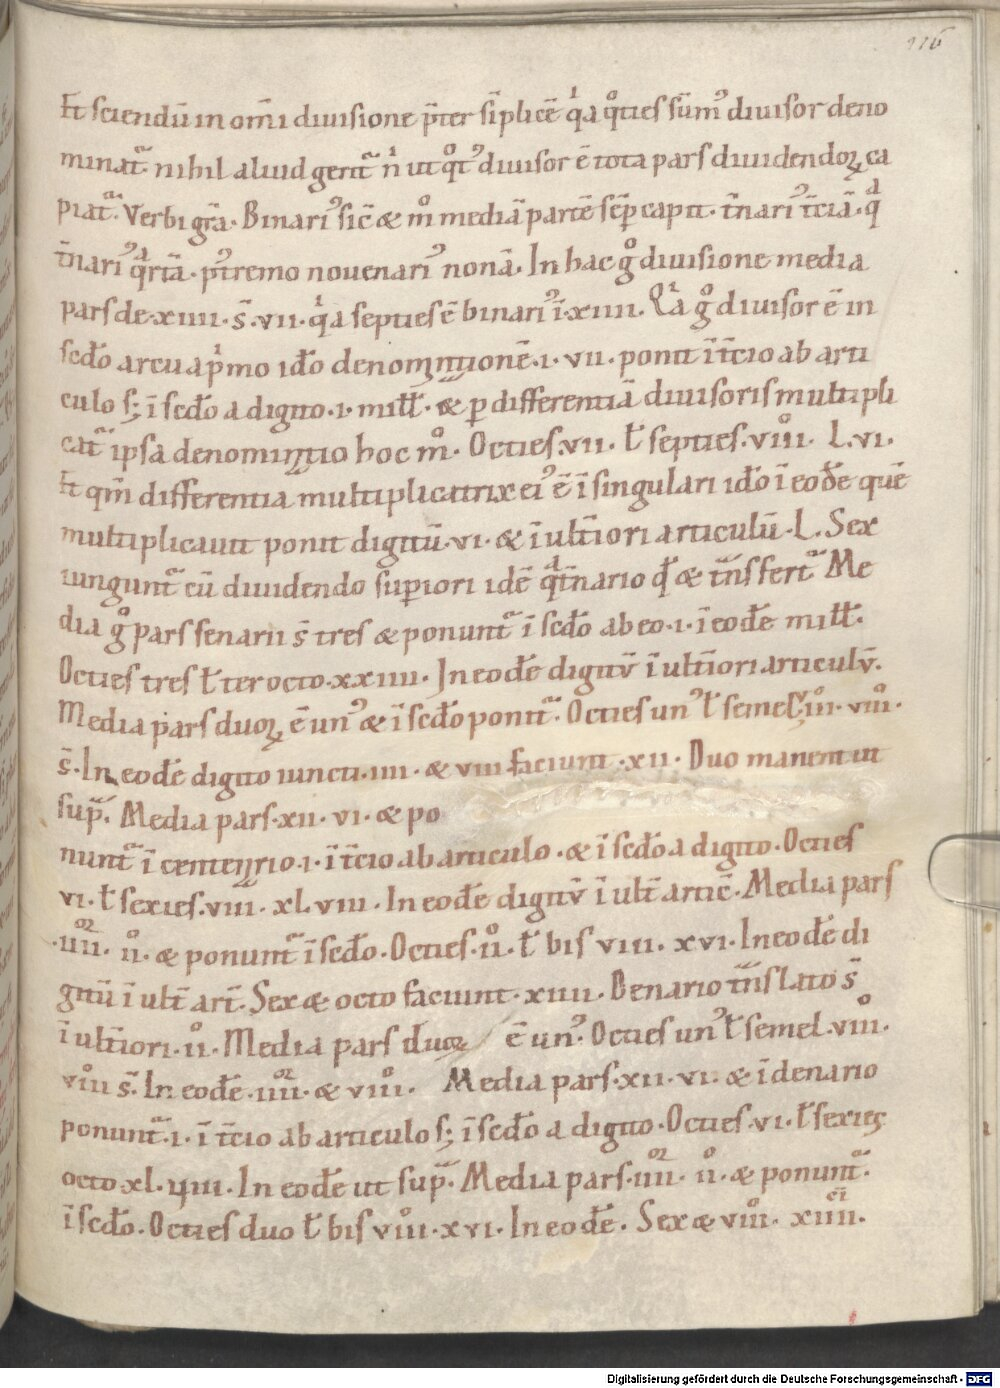 116
Et sciendū in om̄i diuisione p̄ter sīplicē qͥa qͦties sūmꝰ diuisor deno
minat᷑. nihil aliud gerit᷑ nͥ ut qͦtꝰ diuisor ē tota pars diuidendoꝝ ca
piat᷑. Verbi grā. Binariꝰ sic̄ & mͦ mediā partē sēp capit. t̄nariꝰ t̄ciā. qͣ
t̄nariꝰ qͣrtā. pꝰtremo nouenariꝰ nonā. In hac gͦ diuisione media
pars de.xiiii. s̄.vii. qͥa septies ē binariꝰ ī.xiiii. Qͥa gͦ diuisor ē in
sc̄do arcu apͥmo idō denomītionē.i.vii. ponit ī t̄cio ab arti
culo sꝫ ī sc̄do a digito.i. mill̄. & ꝑ differentiā diuisoris multipli
cat᷑ ipsa denominatio hoc mͦ. Octies.vii. ł septies.viiiͦ. L.vi.
Et qm̄ differentia multiplicatrix eiꝰ ē ī singulari idō ī eod̄e quē
multiplicauit ponit digitū.vi. & ī ult̄iori articulū.L. Sex
iungunt᷑ cū diuidendo suꝑiori idē qͣt̄nario qđ & t̄nsfert᷑ Me
dia gͦ pars senarii s̄ tres & ponunt᷑ ī sc̄do ab eo.i. ī eod̄e mill̄.
Octies tres ł ter octo.xxiiii. In eod̄e digitū ī ult̄iori articulū.
Media pars duoꝝ ē unꝰ & ī sc̄do ponit᷑. Octies unꝰ ł semel viiiͦ. viiiͦ.
s̄. In eod̄e digito iuncti.iiii. & viii faciunt.xii. Duo manent ut
sup̄. Media pars.xii. vi. & po
nunt᷑ ī centenario.i. ī t̄cio ab articulo. & ī sc̄do a digito. Octies
vi. ł sexies.viii. xl.viii. In eod̄e digitū ī ult̄ artic̄. Media pars
.iiii. iiͦ. & ponunt᷑ ī sc̄do. Octies.iiͦ. ł bis viii. xvi. In eod̄e di
gitū ī ult̄ art̄. Sex & octo faciunt.xiiii. Denario t̄nslato s̄
ī ult̄iori.iiͦ. Media pars duoꝝ ē unꝰ. Octies unꝰ ł semel.viiiͦ.
viiiͦ s̄. In eod̄e.iiii. & viiiͦ. Media pars.xii.vi. & ī denario
ponunt᷑.i. ī t̄cio ab articulo sꝫ ī sc̄do a digito. Octies.vi. ł sexies
octo xl.viii. In eod̄e ut sup̄. Media pars.iiii. iiͦ. & ponunt᷑.
ī sc̄do. Octies duo ł bis viiiͦ.xvi. In eod̄e. Sex & viiiͦ. xiiii.
Digitalisierung gefördert durch die Deutsche Forschungsgemeinschaft - DFG